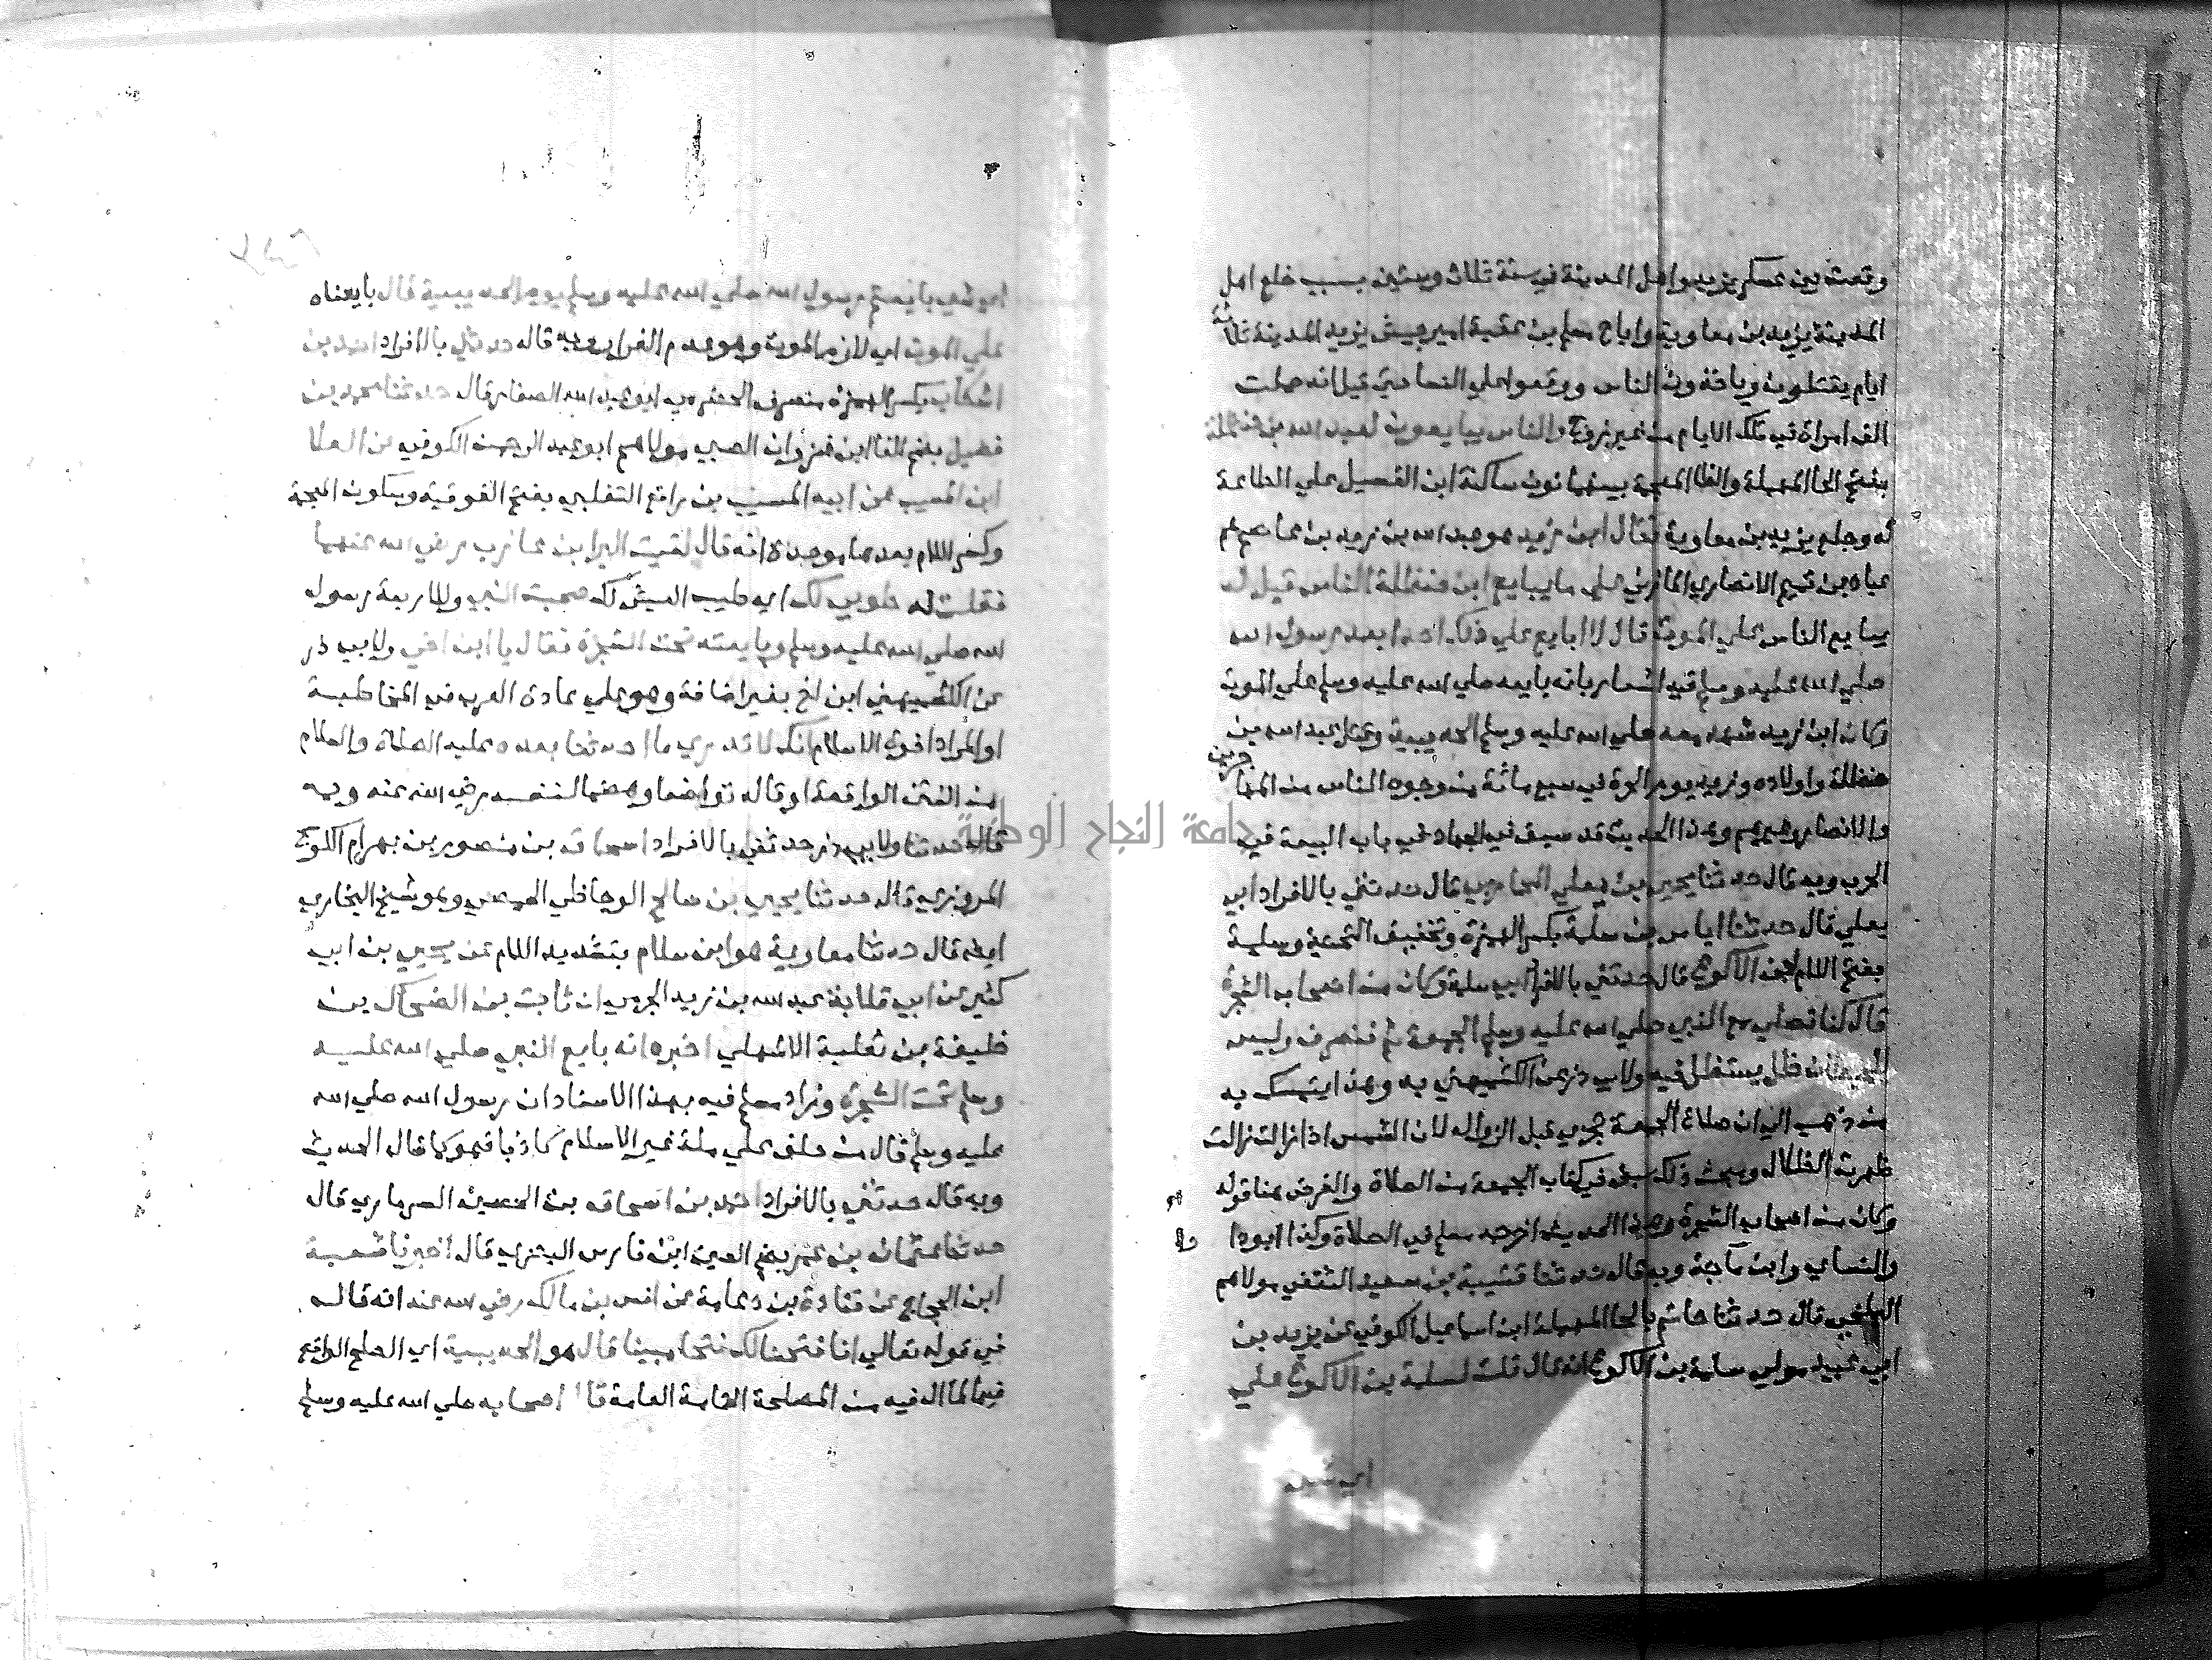 وقعت بين عسكر يزيد واهل المدينة في سنة ثلاث وستين بسبب خلع اهل
المدينة يزيد بن معاوية واباح مسلم بن عقبة امير جيش يزيد المدينة ثلاثة
ايام يقتلون وياخذون الناس ووقعوا علي النسا حتي قيل انه حملت
الف امراة في تلك الايام من غير زوج والناس يبايعون لعبد الله بن حنظلة
بفتح الحا المهملة والظا المعجمة بينهما نون ساكنة ابن الغسيل علي الطاعة
له وخلع يزيد بن معاوية فقال ابن زيد هو عبد الله بن زيد بن عاصم
عباد بن تميم الانصاري المازني علي ما يبايع ابن حنظلة الناس قيل له
يبايع الناس علي الموت قال لا ابايع علي ذلك احدا بعد رسول الله
صلي الله عليه وسلم فيه اشعار بانه بايعه صلي الله عليه وسلم علي الموت
وكان ابن زيد شهد معه صلي الله عليه وسلم الحديبية وقتل عبد الله بن
حنظلة واولاده وزيد يوم الحرة في سبع مائة من وجوه الناس من المهاجرين
والانصار وغيرهم وهذا الحديث قد سبق في الجهاد في باب البيعة في
الحرب وبه قال حدثنا يحيي بن يعلي المحاربي قال حدثني بالافراد ابي
يعلي قال حدثنا اياس بن سلمة بكسر الهمزة وتخفيف التحتية وسلمة
بفتح اللام ابن الاكوع قال حدثني بالافراد ابي سلمة وكان من اصحاب الشجرة
قال كنا نصلي مع النبي صلي الله عليه وسلم الجمعة ثم ننصرف وليس
للحيطان ظل يستظل فيه ولابي ذر عن الكشميهني به وهذا يتمسك به
من ذهب الي ان صلاة الجمعة تجزي قبل الزوال لان الشمس اذا زالت
ظهرت الظلال وبحث ذلك سبق في كتاب الجمعة من الصلاة والغرض هنا قوله
وكان من اصحاب الشجرة وهذا الحديث اخرجه مسلم في الصلاة وكذا ابودا
والنساي وابن ماجة وبه قال حدثنا قتيبة بن سعيد الثقفي مولاهم
البلخي قال حدثنا حاتم بالحا المهملة ابن اسماعيل الكوفي عن يزيد بن
ابي عبيد مولي سلمة بن الاكوع انه قال قلت لسلمة بن الاكوع علي
اي شي
اي شي بايعتم رسول الله صلي الله عليه وسلم يوم الحديبية قال بايعناه
علي الموت اي لازم الموت وهو عدم الفرار وبه قال حدثني بالافراد احمد بن
اشكاب بكسر الهمزة منصرف الحضرمي ابو عبد الله الصفار قال حدثنا محمد بن
فضيل بضم الفا ابن غزوان الضبي مولاهم ابو عبد الرحمن الكوفي عن العلا
ابن المسيب عن ابيه المسيب بن رافع التغلبي بفتح الفوقية وسكون المعجمة
وكسر اللام بعدها موحدة انه قال لقيت البرا بن عازب رضي الله عنهما
فقلت له طوبي لك اي طيب العيش لك صحبت النبي وللاربعة رسول
الله صلي الله عليه وسلم وبايعته تحت الشجرة فقال يا ابن اخي ولابي ذر
عن الكشميهني ابن اخ بغير اضافة وهو علي عادة العرب في المخاطبة
او المراد اخوة الاسلام انك لا تدري ما احدثنا بعده عليه الصلاة والسلام
من الفتن الواقعة او قاله تواضعا وهضما لنفسه رضي الله عنه وبه
قال حدثنا ولابي ذر حدثني بالافراد اسحاق بن منصور بن بهرام الكوسج
المروزي قال حدثنا يحيي بن صالح الوحاظي الحمصي وهو شيخ البخاري
ايضا قال حدثنا معاوية هو ابن سلام بتشديد اللام عن يحيي بن ابي
كثير عن ابي قلابة عبد الله بن زيد الجرمي ان ثابت بن الضحاك بن
خليفة بن ثعلبة الاشهلي اخبره انه بايع النبي صلي الله عليه
وسلم تحت الشجرة وزاد مسلم فيه بهذا الاسناد ان رسول الله صلي الله
عليه وسلم قال من حلف علي ملة غير الاسلام كاذبا فهو كما قال الحديث
وبه قال حدثني بالافراد احمد بن اسحاق بن الحصين السرماري قال
حدثنا عثمان بن عمر بضم العين ابن فارس البصري قال اخبرنا شعبة
ابن الحجاج عن قتادة بن دعامة عن انس بن مالك رضي الله عنه انه قال
في قوله تعالي انا فتحنا لك فتحا مبينا قال هو الحديبية اي الصلح الواقع
فيها لما ال فيه من المصلحة التامة العامة قال اصحابه صلي الله عليه وسلم
جامعة النجاح الوطنية